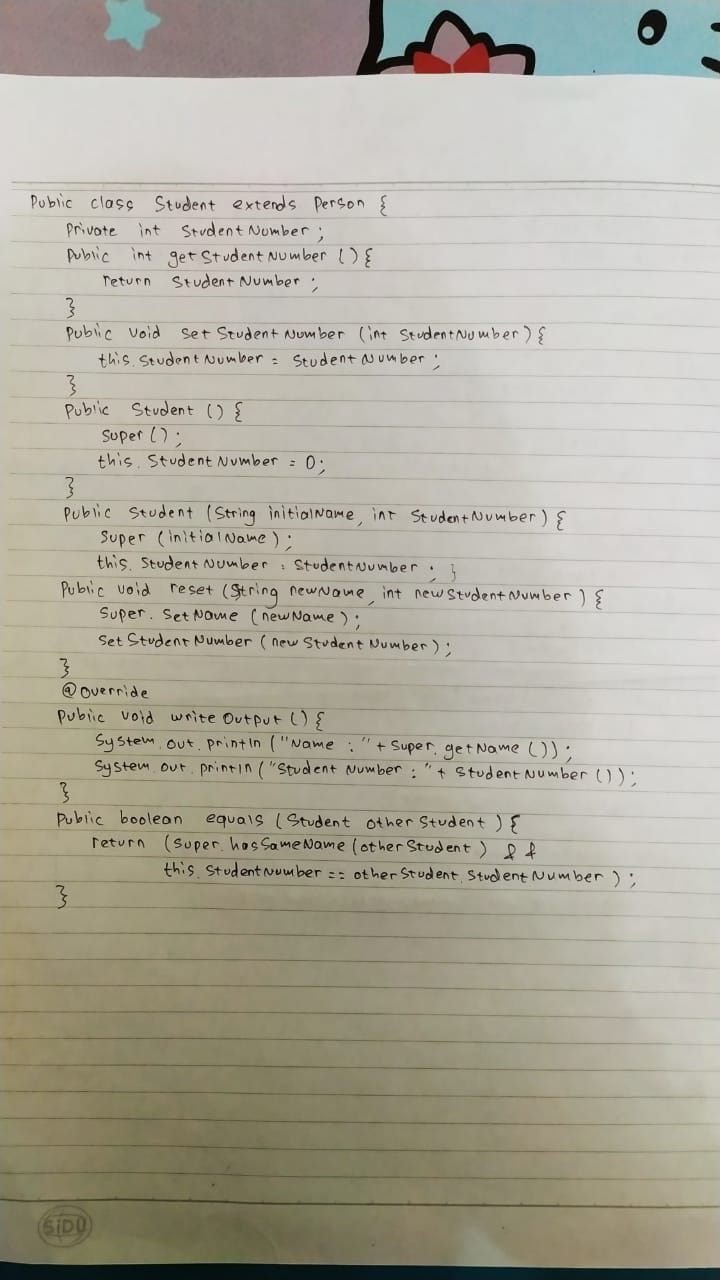 Public class Student extends Person {
Private int StudentNumber ;
Public int getStudentNumber () {
return StudentNumber ;
}
Public void SetStudentNumber (int StudentNumber) {
this. StudentNumber = StudentNumber ;
}
Public Student () {
Super () ;
this. StudentNumber = 0;
}
Public Student (String initialName, int StudentNumber) {
Super (initialName) ;
this. StudentNumber : StudentNumber ; }
Public void reset (String newName, int newStudentNumber ) {
Super. SetName (newName) ;
SetStudentNumber (newStudentNumber) ;
}
@override
Public void writeOutput () {
System. out. println ("Name : " + Super. getName ()) ;
System. out. println ("Student Number : " + StudentNumber ()) ;
}
Public boolean equals (Student otherStudent ) {
return (Super. hasSameName (otherStudent ) &&
this. StudentNumber == otherStudent. StudentNumber ) ;
}
SiDU